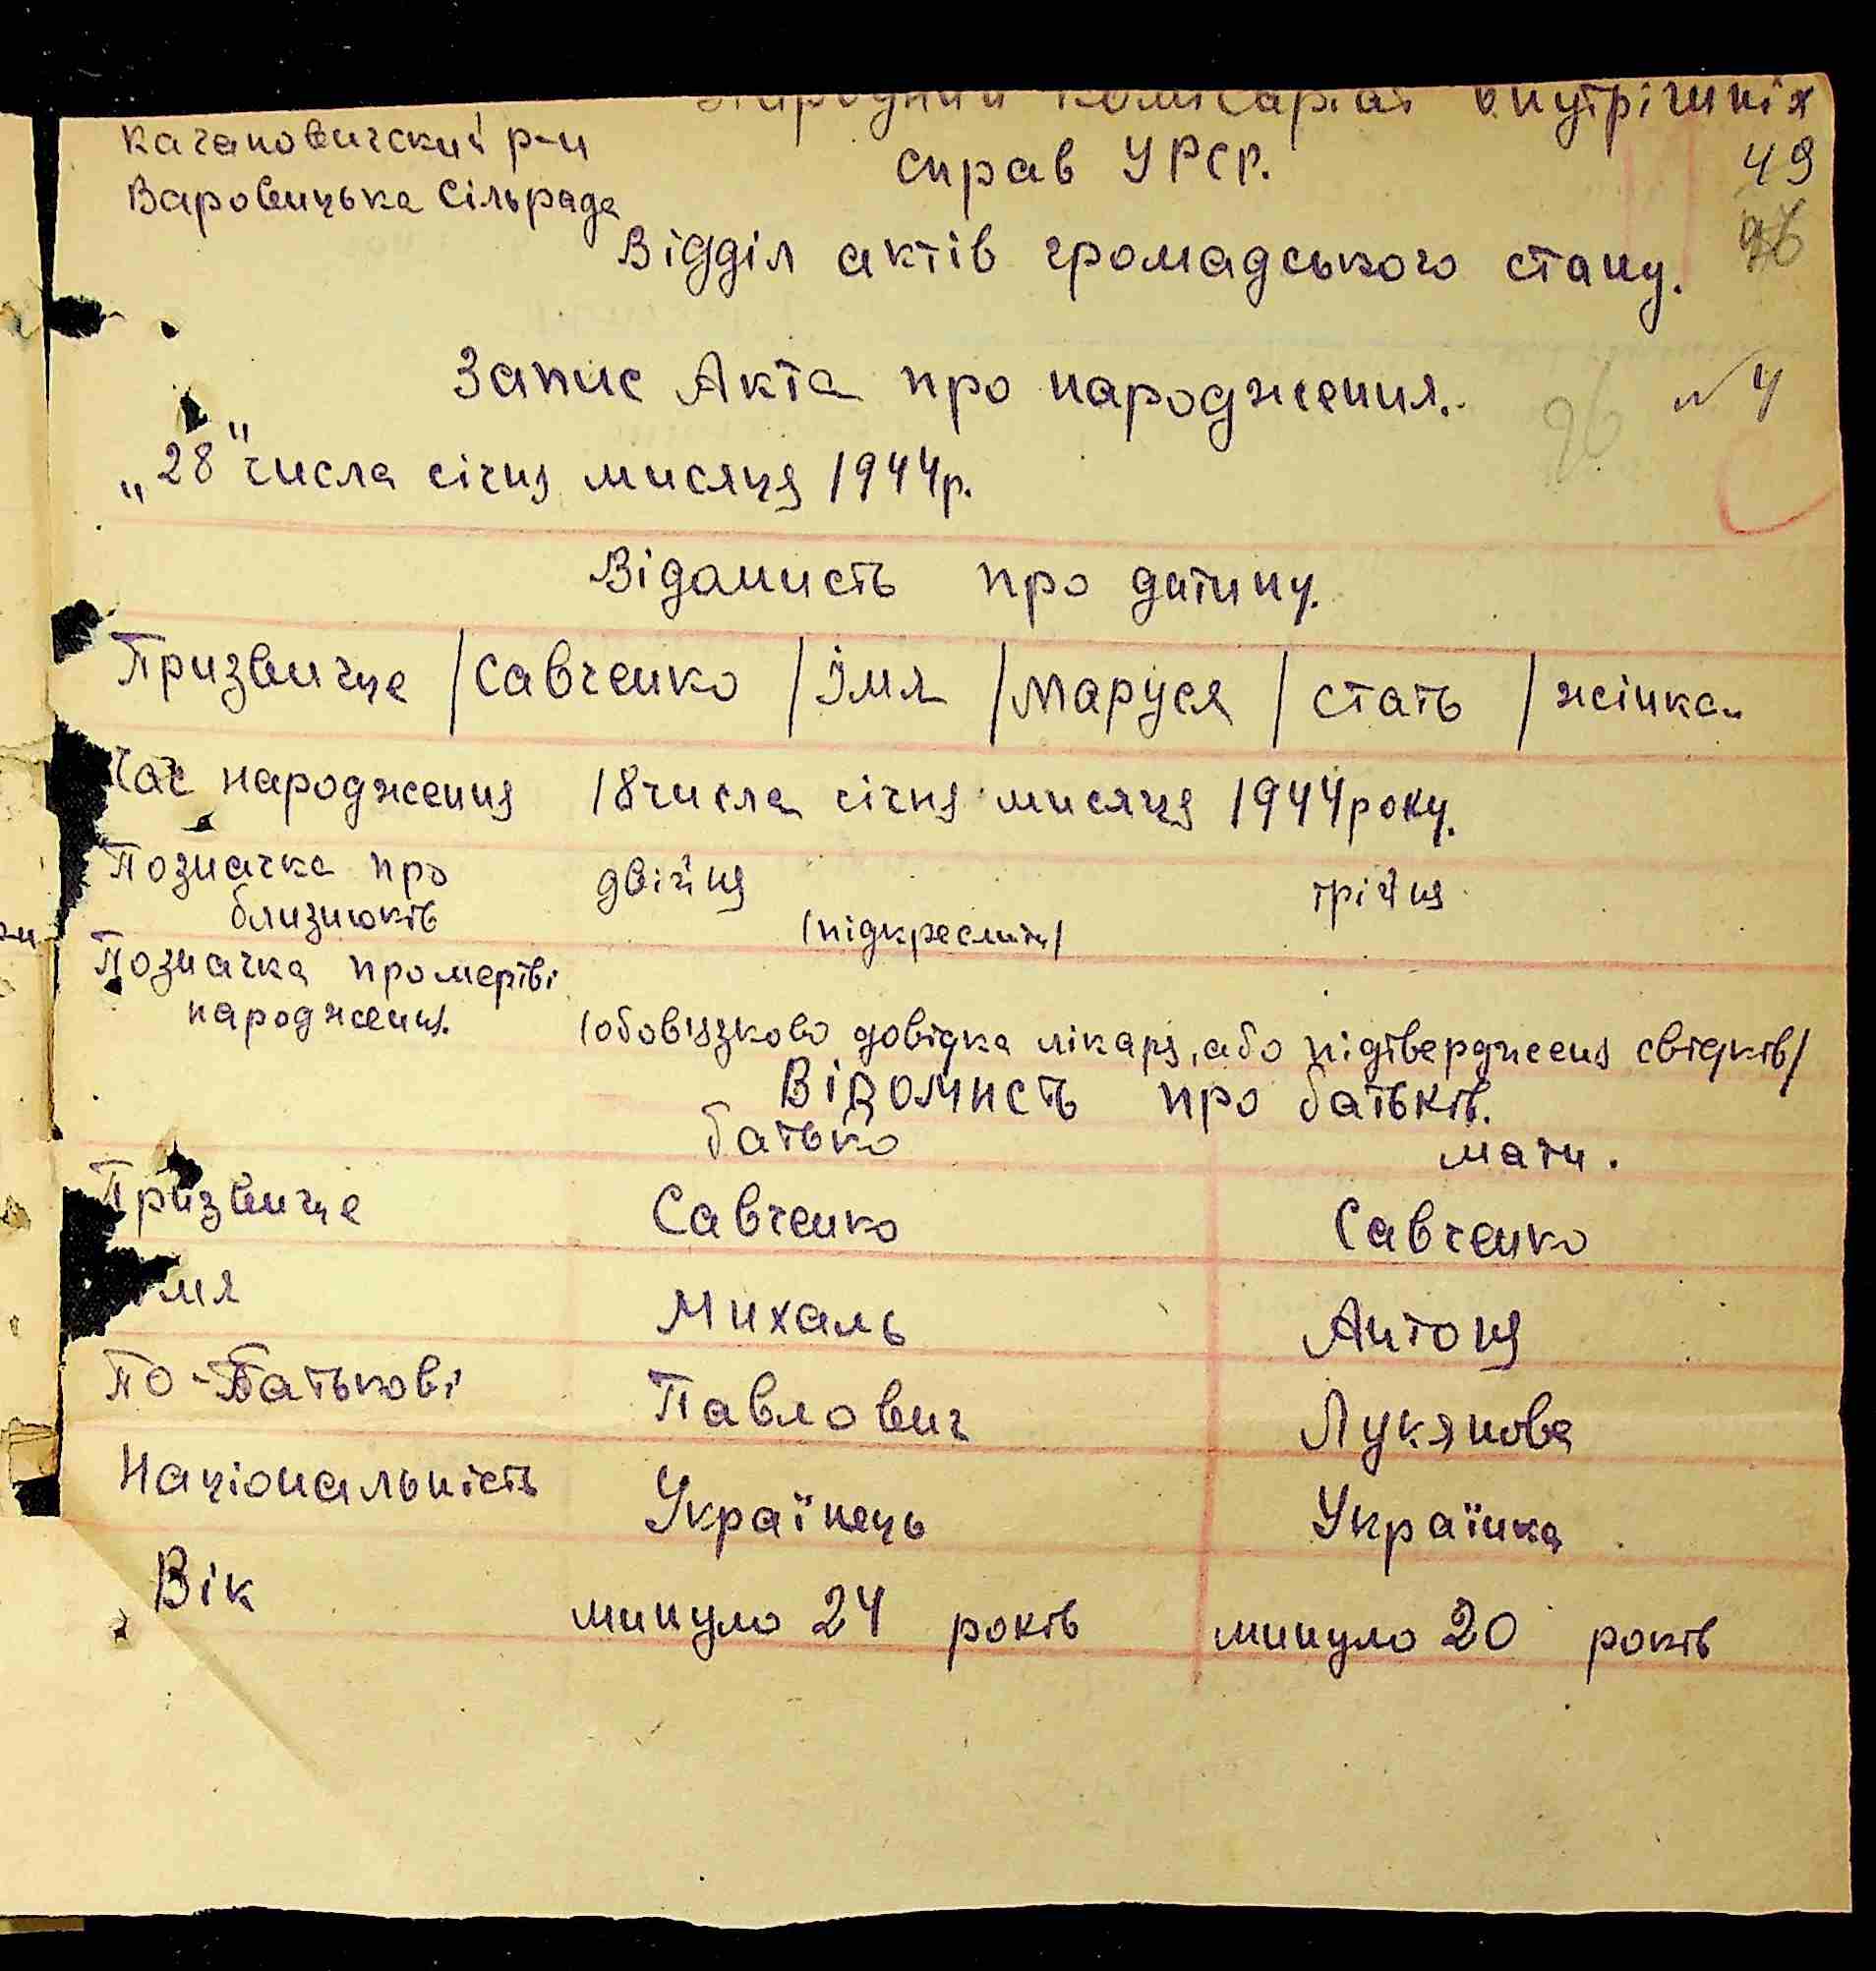 Народний Комісаріат внутрішніх
Кагановичский р-н
справ УРСР.
49
Варовицька Сільрада
96
Відділ актів громадського стану.
Запис Акта про народження.
96
№ 4
„28" числа січня мисяця 1944р.
Відомисть про дитину.
Призвище / Савченко / Імя / Маруся / стать / жінка
Час народження 18 числа січня мисяця 1944 року.
Позначка про близнюків двійня /підкреслити/ трійня
Позначка про мертві народження. /обовязково довідка лікаря, або підтвердженя свідків/
Відомисть про батьків.
батько мати.
Призвище Савченко Савченко
Імя Михаль Антоня
По-Батькові Павлович Лукянова
Національність Українець Українка
Вік минуло 24 років минуло 20 років